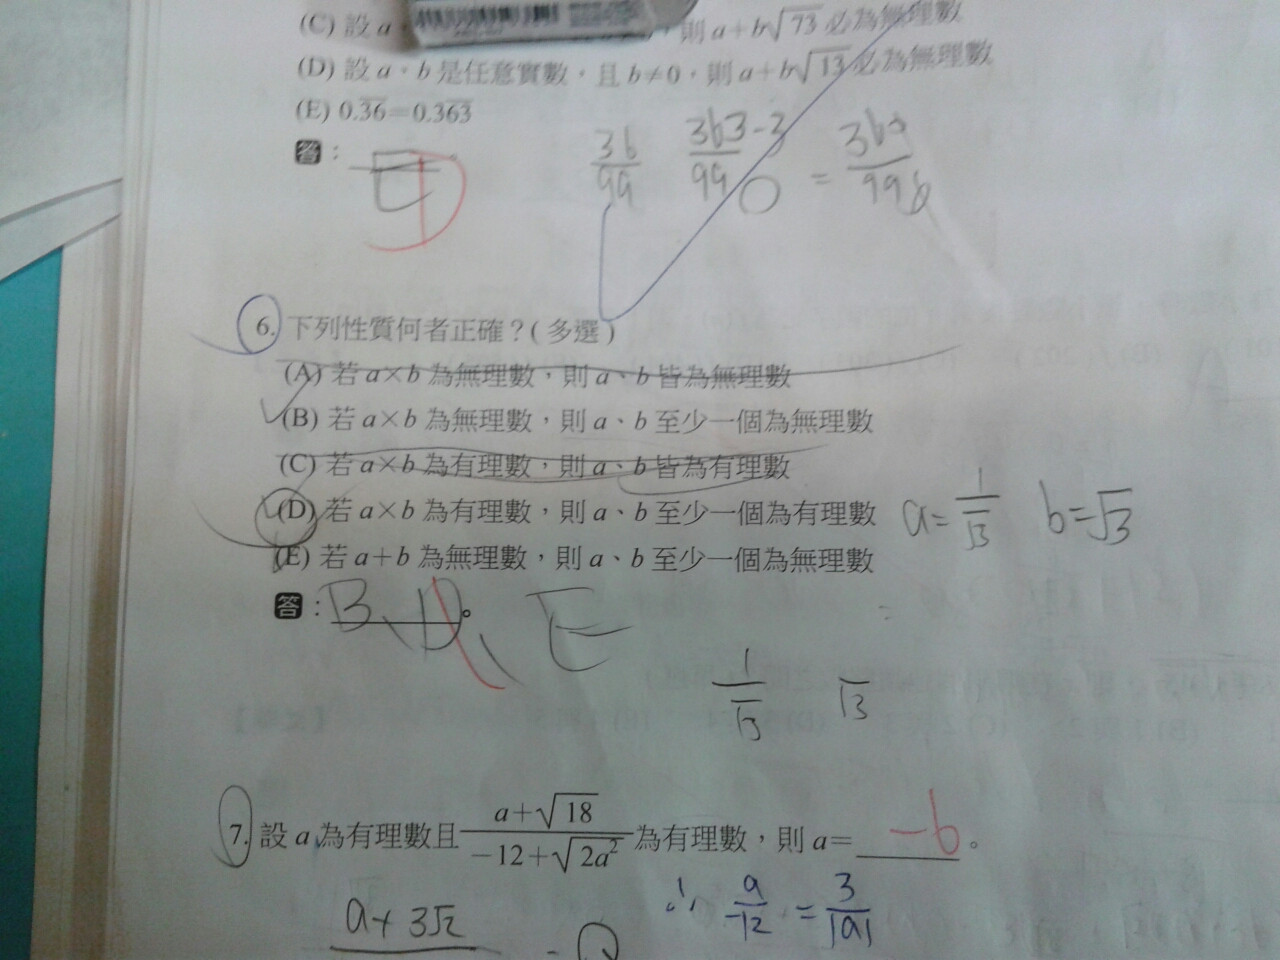 (C) 設 a 則 a+b√73 必為無理數
(D) 設 a、b 是任意實數，且 b≠0，則 a+b√13 必為無理數
(E) 0.36=0.363
答：E
36/99 363-3/990 =
6. 下列性質何者正確？(多選)
(A) 若 a×b 為無理數，則 a、b 皆為無理數
(B) 若 a×b 為無理數，則 a、b 至少一個為無理數
(C) 若 a×b 為有理數，則 a、b 皆為有理數
(D) 若 a×b 為有理數，則 a、b 至少一個為有理數 a=1/√3 b=√3
(E) 若 a+b 為無理數，則 a、b 至少一個為無理數
答：B、D、E。
1/√3 √3
7. 設 a 為有理數且 a+√18/-12+√2a² 為有理數，則 a= -6 。
∴ a/-12 = 3/|a|
a+3√2 = Q